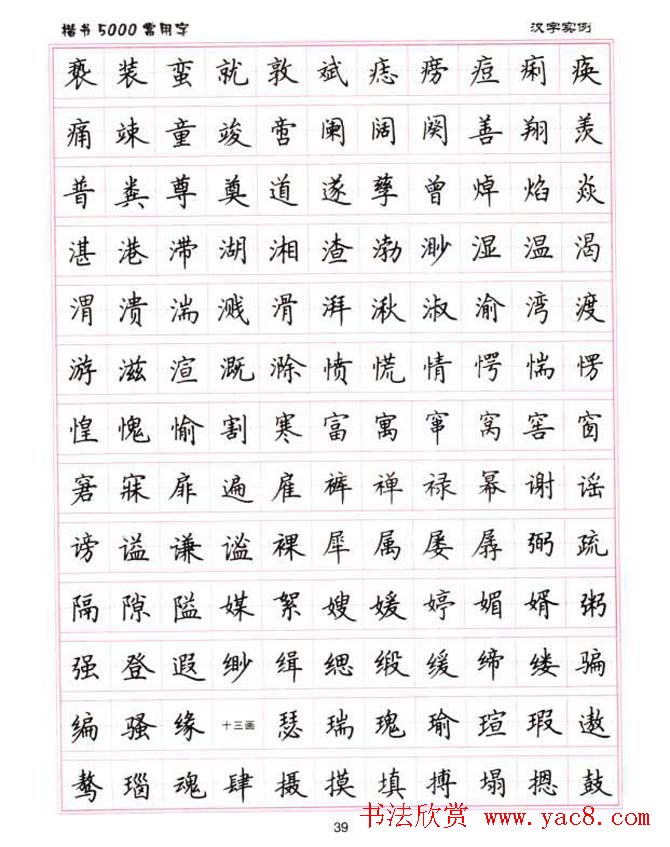 楷书5000常用字 汉字实例
亵 装 蛮 就 敦 斌 痣 痨 痘 痢 痪
痛 竦 童 竣 啻 阑 阔 阕 善 翔 羡
普 粪 尊 奠 道 遂 孳 曾 焯 焰 焱
湛 港 滞 湖 湘 渣 渤 渺 湿 温 渴
渭 溃 湍 溅 滑 湃 湫 淑 渝 湾 渡
游 滋 渲 溉 滁 愤 慌 惰 愕 惴 愣
惶 愧 愉 割 寒 富 寓 窜 窝 窖 窗
窘 寐 扉 遍 雇 裤 禅 禄 幂 谢 谣
谤 谥 谦 谧 裸 犀 属 屡 孱 弼 疏
隔 隙 隘 媒 絮 嫂 媛 婷 媚 婿 粥
强 登 遐 缈 缉 缌 缎 缓 缔 缕 骗
编 骚 缘 十三画 瑟 瑞 瑰 瑜 瑄 瑕 遨
骜 瑙 魂 肆 摄 摸 填 搏 塌 摁 鼓
39
书法欣赏 www.yac8.com